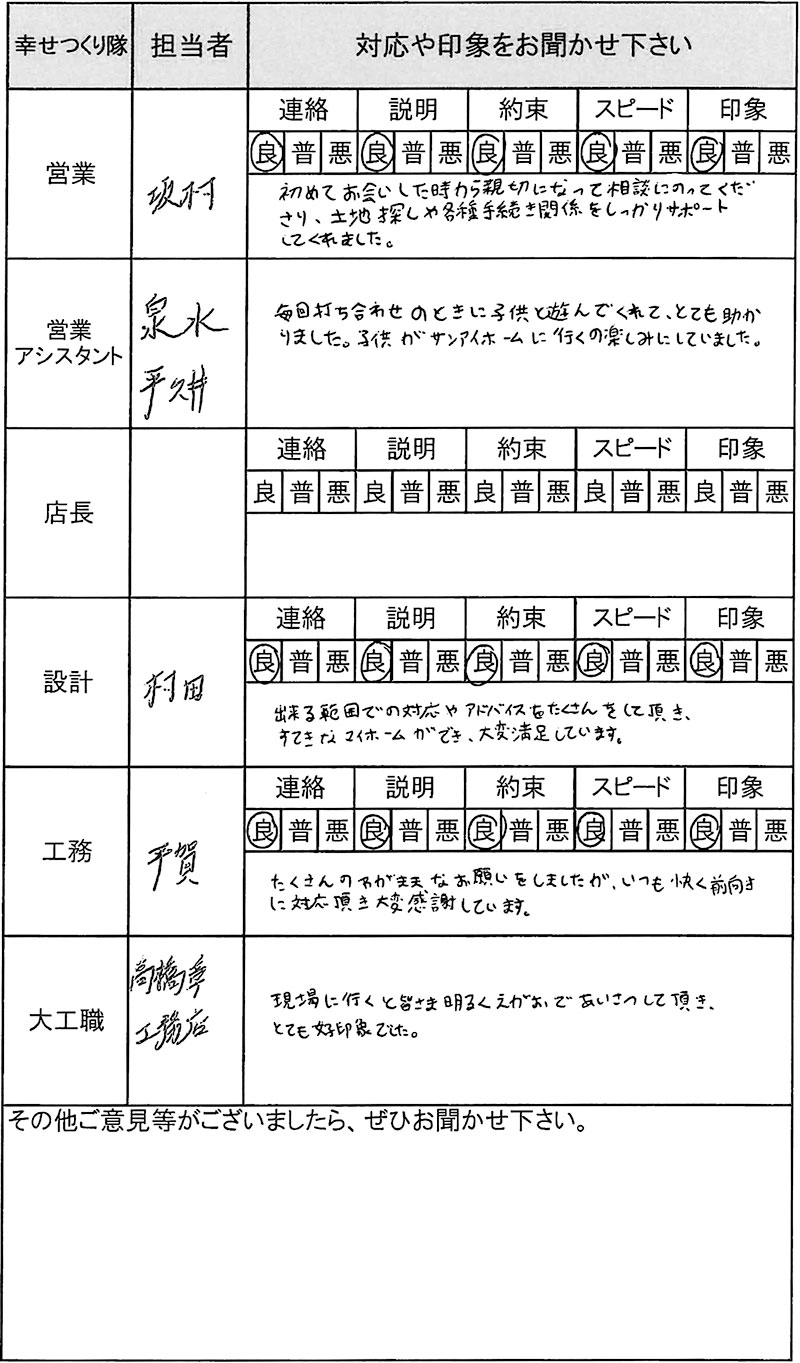 幸せつくり隊 担当者 対応や印象をお聞かせ下さい
営業 坂村
連絡 説明 約束 スピード 印象
良 普 悪 良 普 悪 良 普 悪 良 普 悪 良 普 悪
初めてお会いした時から親切になって相談にのってくだ
さり、土地探しや各種手続き関係をしっかりサポート
してくれました。
営業
アシスタント
泉水
平久井
毎回打ち合わせのときに子供と遊んでくれて、とても助か
りました。子供がサンアイホームに行くの楽しみにしていました。
店長
連絡 説明 約束 スピード 印象
良 普 悪 良 普 悪 良 普 悪 良 普 悪 良 普 悪
設計 村田
連絡 説明 約束 スピード 印象
良 普 悪 良 普 悪 良 普 悪 良 普 悪 良 普 悪
出来る範囲での対応やアドバイスをたくさんをして頂き、
すてきなマイホームができ、大変満足しています。
工務 平賀
連絡 説明 約束 スピード 印象
良 普 悪 良 普 悪 良 普 悪 良 普 悪 良 普 悪
たくさんのわがままなお願いをしましたが、いつも快く前向き
に対応頂き大変感謝しています。
大工職
高橋幸
工務店
現場に行くと皆さま明るくえがおであいさつして頂き、
とても好印象でした。
その他ご意見等がございましたら、ぜひお聞かせ下さい。